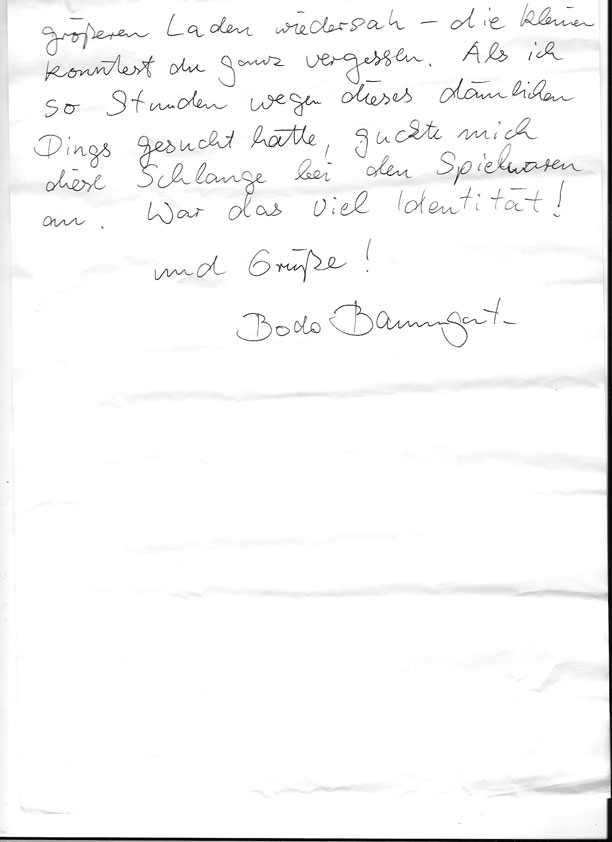 größeren Laden wiedersah – die kleinen
konntest du ganz vergessen. Als ich
so Stunden wegen dieses dämlichen
Dings gesucht hatte, guckte mich
diese Schlange bei den Spielwaren
an. War das viel Identität!
und Grüße!
Bodo Baumgart